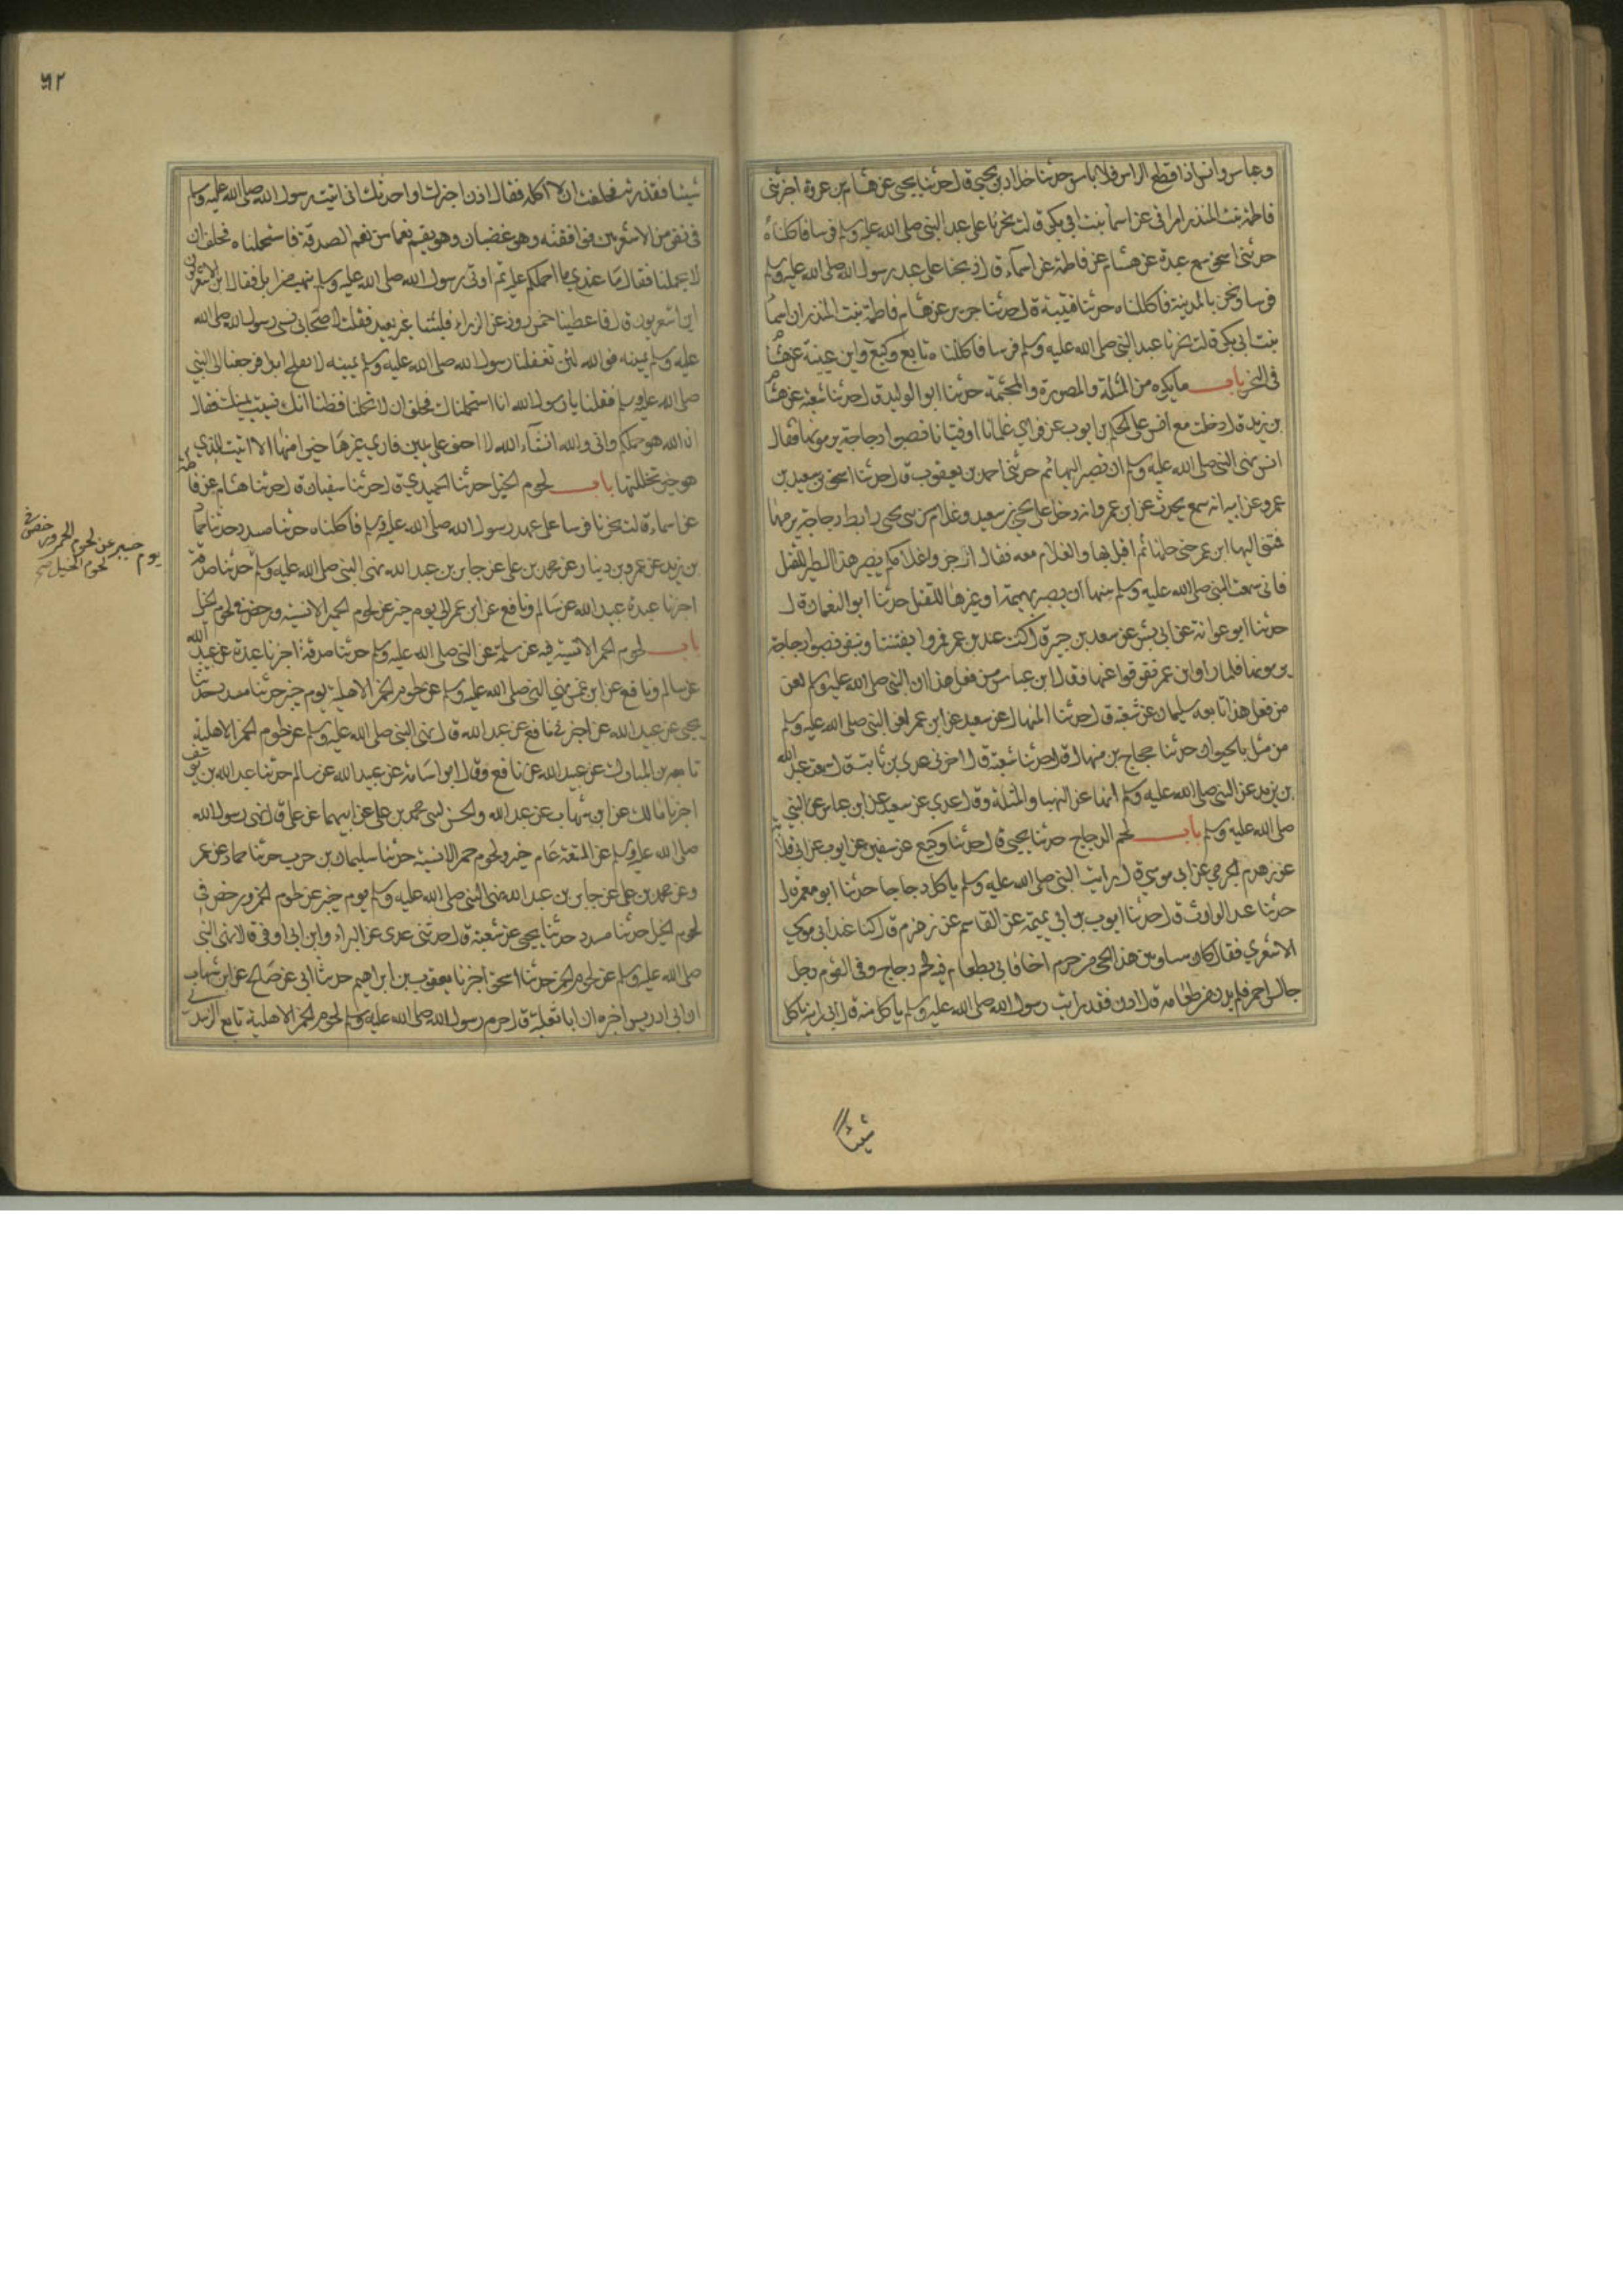 وعباس وانس اذا قطع الراس فلا باس حدثنا خلاد بن يحيى قال حدثنا يحيى عن هشام بن عروة اخبرتنى
فاطمة بنت المنذر امراتى عن اسما بنت ابي بكر قالت نحرنا على عهد النبى صلى الله عليه وسلم فرسا فاكلناه
حدثنى اسحق سمع عبدة عن هشام عن فاطمة عن اسماء قالت ذبحنا على عهد رسول الله صلى الله عليه وسلم
فرسا ونحن بالمدينة فاكلناه حدثنا قتيبة قال حدثنا جرير عن هشام فاطمة بنت المنذر ان اسما
بنت ابى بكر قالت نحرنا عهد النبى صلى الله عليه وسلم فرسا فاكلناه تابع وكيع وابن عيينة عن هشام
فى النحر باب ما يكره من المثلة والمصبورة والمجثمة حدثنا ابو الوليد قال حدثنا شعبة عن هشام
بن زيد قال دخلت مع انس على الحكم بن ايوب فراي غلمانا او فتيانا نصبوا دجاجة يرمونها فقال
انس نهى النبى صلى الله عليه وسلم ان تصبر البهائم حدثنى احمد بن يعقوب قال حدثنا اسحق بن سعيد بن
عمرو عن ابيه انه سمع يحدث عن ابن عمر انه دخل على يحيى بن سعيد وغلام من بنى يحيى رابط دجاجة يرميها
فمشى اليها ابن عمر حتى حلها ثم اقبل بها والغلام معه فقال ازجروا غلامكم يصبر هذا الطير للقتل
فانى سمعت النبى صلى الله عليه وسلم نهى ان يصبر بهيمة او غيرها للقتل حدثنا ابو النعمان قال
حدثنا ابو عوانة عن ابى بشر عن سعيد بن جبير قال كنت عند بن عمر فمروا بفتية او بنفر نصبوا دجاجة
يرمونها فلما راوا ابن عمر تفرقوا عنها فقال ابن عباس من فعل هذا ان النبى صلى الله عليه وسلم لعن
من فعل هذا تابعه سليمان عن شعبة قال حدثنا المنهال عن سعيد عن ابن عمر لعن النبى صلى الله عليه وسلم
من مثل بالحيوان حدثنا حجاج بن منهال قال حدثنا شعبة قال اخبرنى عدى بن ثابت قال سمعت عبد الله
بن يزيد عن النبى صلى الله عليه وسلم انه نها عن النهبا والمثلة وقال عدي عن سعيد عن ابن عباس عن النبى
صلى الله عليه وسلم باب لحم الدجاج حدثنا يحيى قال حدثنا وكيع عن سفين عن ايوب عن ابى قلابة
عن زهدم الجرمي عن ابى موسى قال رايت النبى صلى الله عليه وسلم ياكل دجاجا حدثنا ابو معمر قال
حدثنا عبد الوارث قال حدثنا ايوب بن ابي تميمة عن القاسم عن زهدم قال كنا عند ابى موسى
الاشعري فقال كان بيننا وبين هذا الحى من جرم اخا فاتي بطعام فيه لحم دجاج وفى القوم رجل
جالس احمر فلم يدن من طعامه قال ادن فقد رايت رسول الله صلى الله عليه وسلم ياكل منه قال انى رايته ياكل
شيئا
٥٢
شيئا فقذرته فحلفت ان لا اكله فقال ادن اخبرك او احدثك انى اتيت رسول الله صلى الله عليه وسلم
فى نفر من الاشعريين فوافقته وهو غضبان وهو يقسم نعما من نعم الصدقة فاستحملناه فحلف ان
لا يحملنا فقال ما عندي ما احملكم عليه ثم اوتى رسول الله صلى الله عليه وسلم بنهب من ابل فقال اين الاشعريون
اين الاشعريون قال فاعطينا خمس ذود غر الذرى فلبثنا غير بعيد فقلت لاصحابى نسى رسول الله صلى الله
عليه وسلم يمينه فوالله لئن تغفلنا رسول الله صلى الله عليه وسلم يمينه لا نفلح ابدا فرجعنا الى النبى
صلى الله عليه وسلم فقلنا يا رسول الله انا استحملناك فحلفت ان لا تحملنا فظننا انك نسيت يمينك فقال
ان الله هو حملكم وانى والله ان شاء الله لا احلف على يمين فارى غيرها خيرا منها الا اتيت الذي
هو خير وتحللتها باب لحوم الخيل حدثنا الحميدي قال حدثنا سفيان قال حدثنا هشام عن فاطمة
عن اسماء قالت نحرنا فرسا على عهد رسول الله صلى الله عليه وسلم فاكلناه حدثنا مسدد حدثنا حماد
بن زيد عن عمرو بن دينار عن محمد بن على عن جابر بن عبد الله نهى النبى صلى الله عليه وسلم حدثنا صدقة
يوم خيبر عن لحوم الحمر ورخص فى
لحوم الخيل صح
اخبرنا عبدة عبيد الله عن سالم ونافع عن ابن عمر يوم خيبر عن لحوم الحمر الانسية ورخص فى لحوم الخيل
باب لحوم الحمر الانسية فيه عن سلمة عن النبى صلى الله عليه وسلم حدثنا صدقة اخبرنا عبدة عن عبيد الله
عن سالم ونافع عن ابن عمر نهى النبى صلى الله عليه وسلم عن لحوم الحمر الاهلية يوم خيبر حدثنا مسدد حدثنا
يحيى عن عبيد الله عن اخبرنى نافع عن عبد الله قال نهى النبى صلى الله عليه وسلم عن لحوم الحمر الاهلية
تابعه بن المبارك عن عبيد الله عن نافع وقال ابو اسامة عن عبيد الله عن سالم حدثنا عبد الله بن يوسف
اخبرنا مالك عن ابن شهاب عن عبد الله والحسن بنى محمد بن على عن ابيهما عن على قال نهى رسول الله
صلى الله عليه وسلم عن المتعة عام خيبر ولحوم حمر الانسية حدثنا سليمان بن حرب حدثنا حماد عن عمر
وعن محمد بن على عن جابر بن عبد الله نهى النبى صلى الله عليه وسلم يوم خيبر عن لحوم الحمر ورخص فى
لحوم الخيل حدثنا مسدد حدثنا يحيى عن شعبة قال حدثنى عدى عن البراء وابن ابى اوفى قالا نهى النبى
صلى الله عليه وسلم عن لحوم الحمر حدثنا اسحق اخبرنا يعقوب بن ابراهيم حدثنا ابى عن صالح عن ابن شهاب
ان ابا ادريس اخبره ان ابا ثعلبة قال حرم رسول الله صلى الله عليه وسلم لحوم الحمر الاهلية تابعه الزبيدى